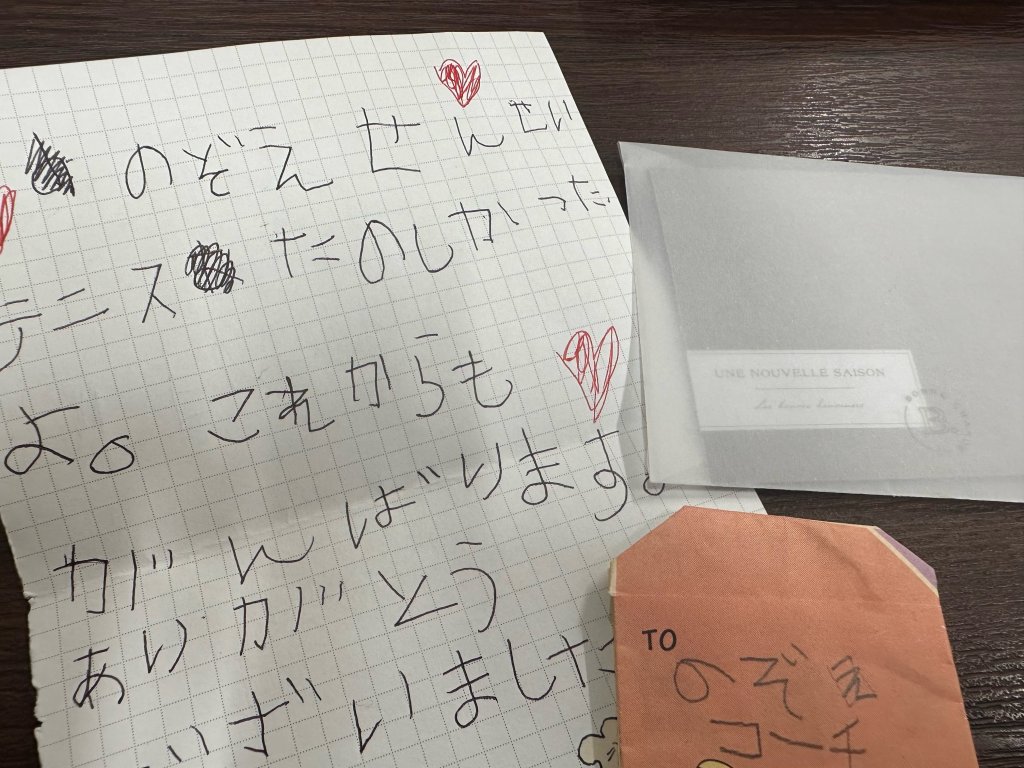 のぞえ せんせい
テニス たのしかった
よ。これからも
がんばります。
ありがとう
ございました
UNE NOUVELLE SAISON
TO
のぞえ
コーチ